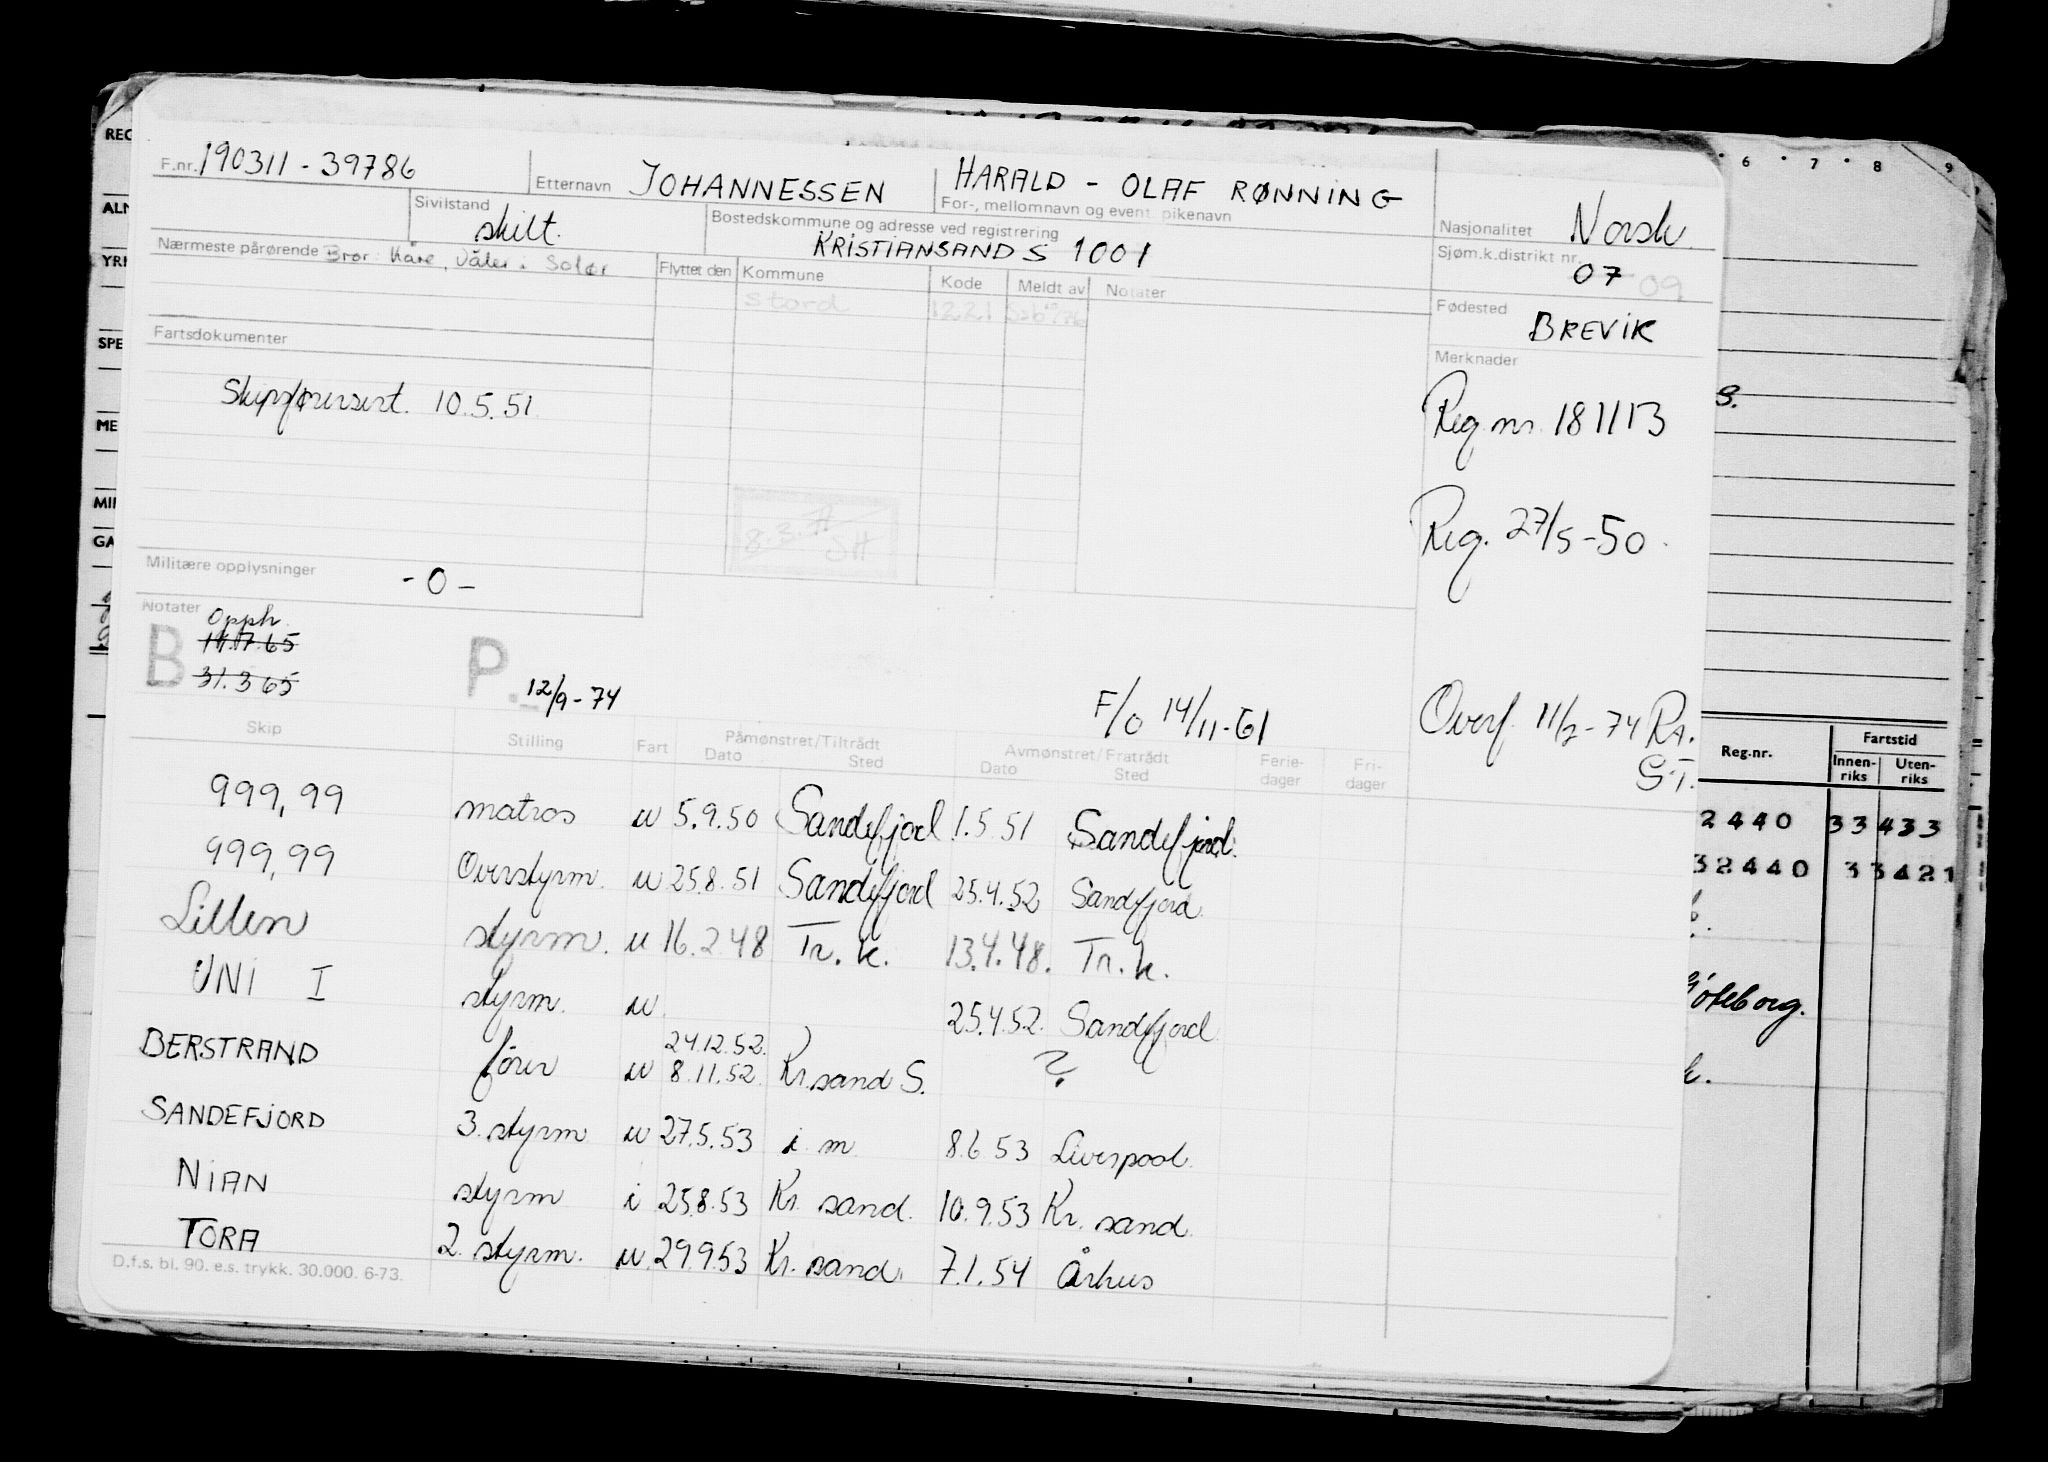 F.nr. 190311 - 39786 Etternavn JOHANNESSEN HARALD - OLAF RØNNING
For-, mellomnavn og event. pikenavn
Nasjonalitet Norsk.
Sivilstand skilt.
Bostedskommune og adresse ved registrering
KRISTIANSAND S 1001
Sjøm.k.distrikt nr. 07 09
Nærmeste pårørende Bror: Kåre, Våler i Solør
Flyttet den Kommune Kode Meldt av Notater
Stord 1221
Fødested BREVIK
Fartsdokumenter
Merknader
Skipsførersert. 10.5.51
Reg nr. 181113
Reg. 27/5-50.
8.3. SH
Militære opplysninger -0-
Notater Opph.
B 14.7.65
31.3 65
P. 12/9-74
F/O 14/11-61
Overf. 11/2-74 RA.
ST.
Skip Stilling Fart Påmønstret/Tiltrådt Dato Sted Avmønstret/Fratrådt Dato Sted Ferie-dager Fri-dager
999,99 matros u 5.9.50 Sandefjord 1.5.51 Sandefjord.
999,99 Overstyrm. u 25.8.51 Sandefjord 25.4.52 Sandefjord.
Lillen styrm. u 16.2.48 Tr.k. 13.4.48. Tr.k.
UNI I styrm. u. 25.4.52. Sandefjord
24.12.52.
BERSTRAND fører u 8.11.52. Kr.sand S. ?
SANDEFJORD 3. styrm u 27.5.53 i. m. 8.6.53 Liverpool.
NIAN styrm i 25.8.53 Kr. sand. 10.9.53 Kr. sand.
TORA 2. styrm. u. 29.9.53 Kr. sand. 7.1.54 Århus
D.f.s. bl. 90. e.s. trykk. 30.000. 6-73.
REG
ALM
SPE
ME
MI
GA
6 7 8 9
S.
Reg.nr. Fartstid
Innen-riks Uten-riks
2440 33 433
32440 33421
Göteborg.
k.